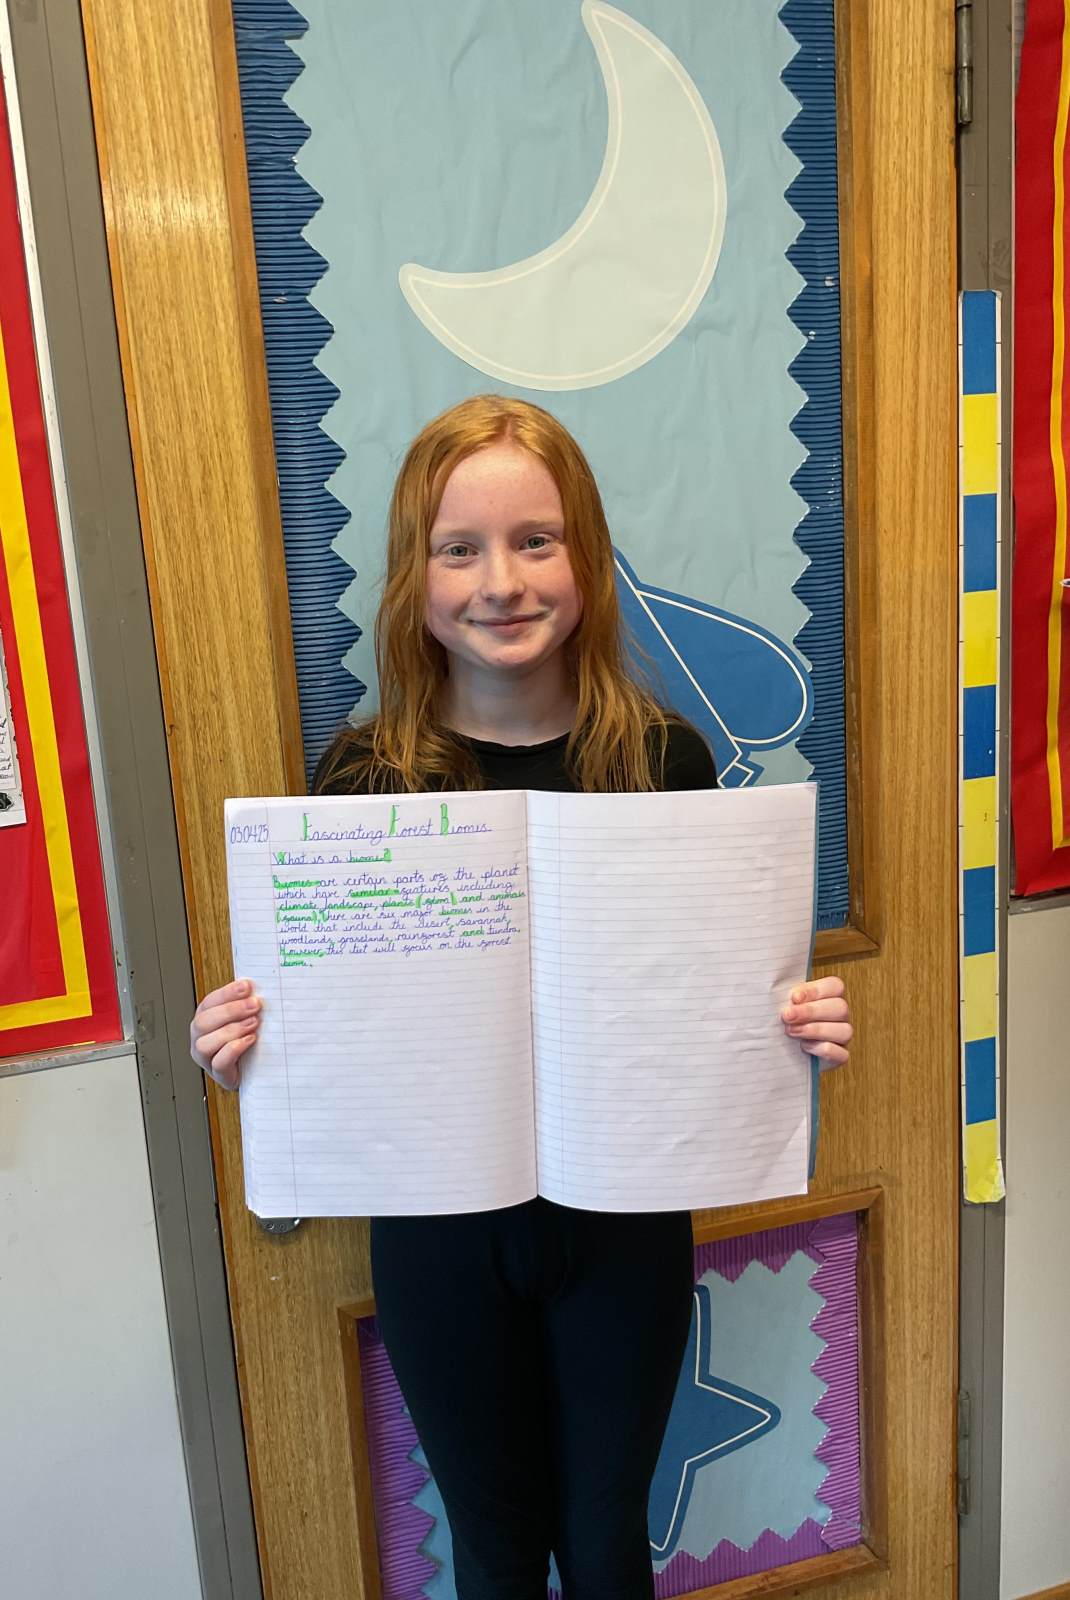 03.04.25 Fascinating Forest Biomes
What is a biome?
Biomes are certain parts of the planet
which have similar features including
climate, landscape, plants (flora) and animals
(fauna). There are six major biomes in the
world that include the desert, savannah,
woodlands, grasslands, rainforest and tundra.
However, this text will focus on the forest
biome.